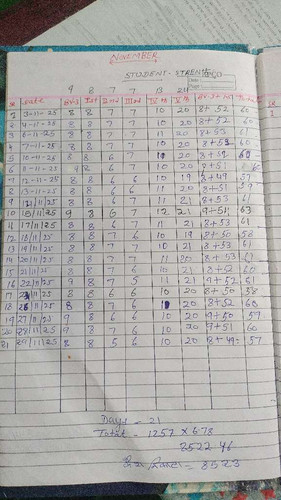 NOVEMBER
STUDENT - STRENGTH
9 8 7 7 13 21
Date Bv-s Ist II nd III rd IV th V th
1 3-11-25 8 8 7 7 10 20 8+52 60
2 4-11-25 8 8 7 7 10 20 8+52 60
3 6-11-25 8 8 7 7 11 20 8+53 61
4 7-11-25 8 8 7 7 10 20 8+52 60
5 10-11-25 8 8 6 7 10 20 8+52
6 11-11-25 9 8 6 7 10 20 8+51
7 12-11-25 8 8 6 6 10 19 8+49 57
8 13-11-25 8 8 6 6 11 20 8+51 59
9 14/11/25 8 8 6 7 11 21 8+53 61
10 15/11/25 9 8 6 7 12 21 9+51 63
11 17/11/25 8 8 6 7 11 21 8+53 61
12 18/11/25 8 8 7 6 10 19 8+50 58
13 19/11/25 8 8 7 7 10 21 8+53 61
14 20/11/25 8 8 7 7 11 20 8+53 61
15 21/11/25 8 8 7 6 10 21 8+52 60
16 22/11/25 9 8 7 5 11 21 9+52 61
17 24/11/25 8 8 6 6 10 20 8+50 58
18 26/11/25 8 8 7 6 10 20 8+52 60
19 27/11/25 9 8 6 6 10 20 9+50 59
20 28/11/25 9 8 7 6 10 20 9+51 60
21 29/11/25 8 8 5 6 10 20 8+49 57
Days - 21
Total - 1257 x 6.78
8522.46
= 8523